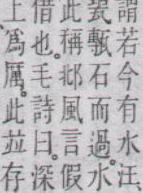 謂若今有水注
甎石而過。水
此稱邶風言假
借也。毛詩曰。深
上爲厲。此並存